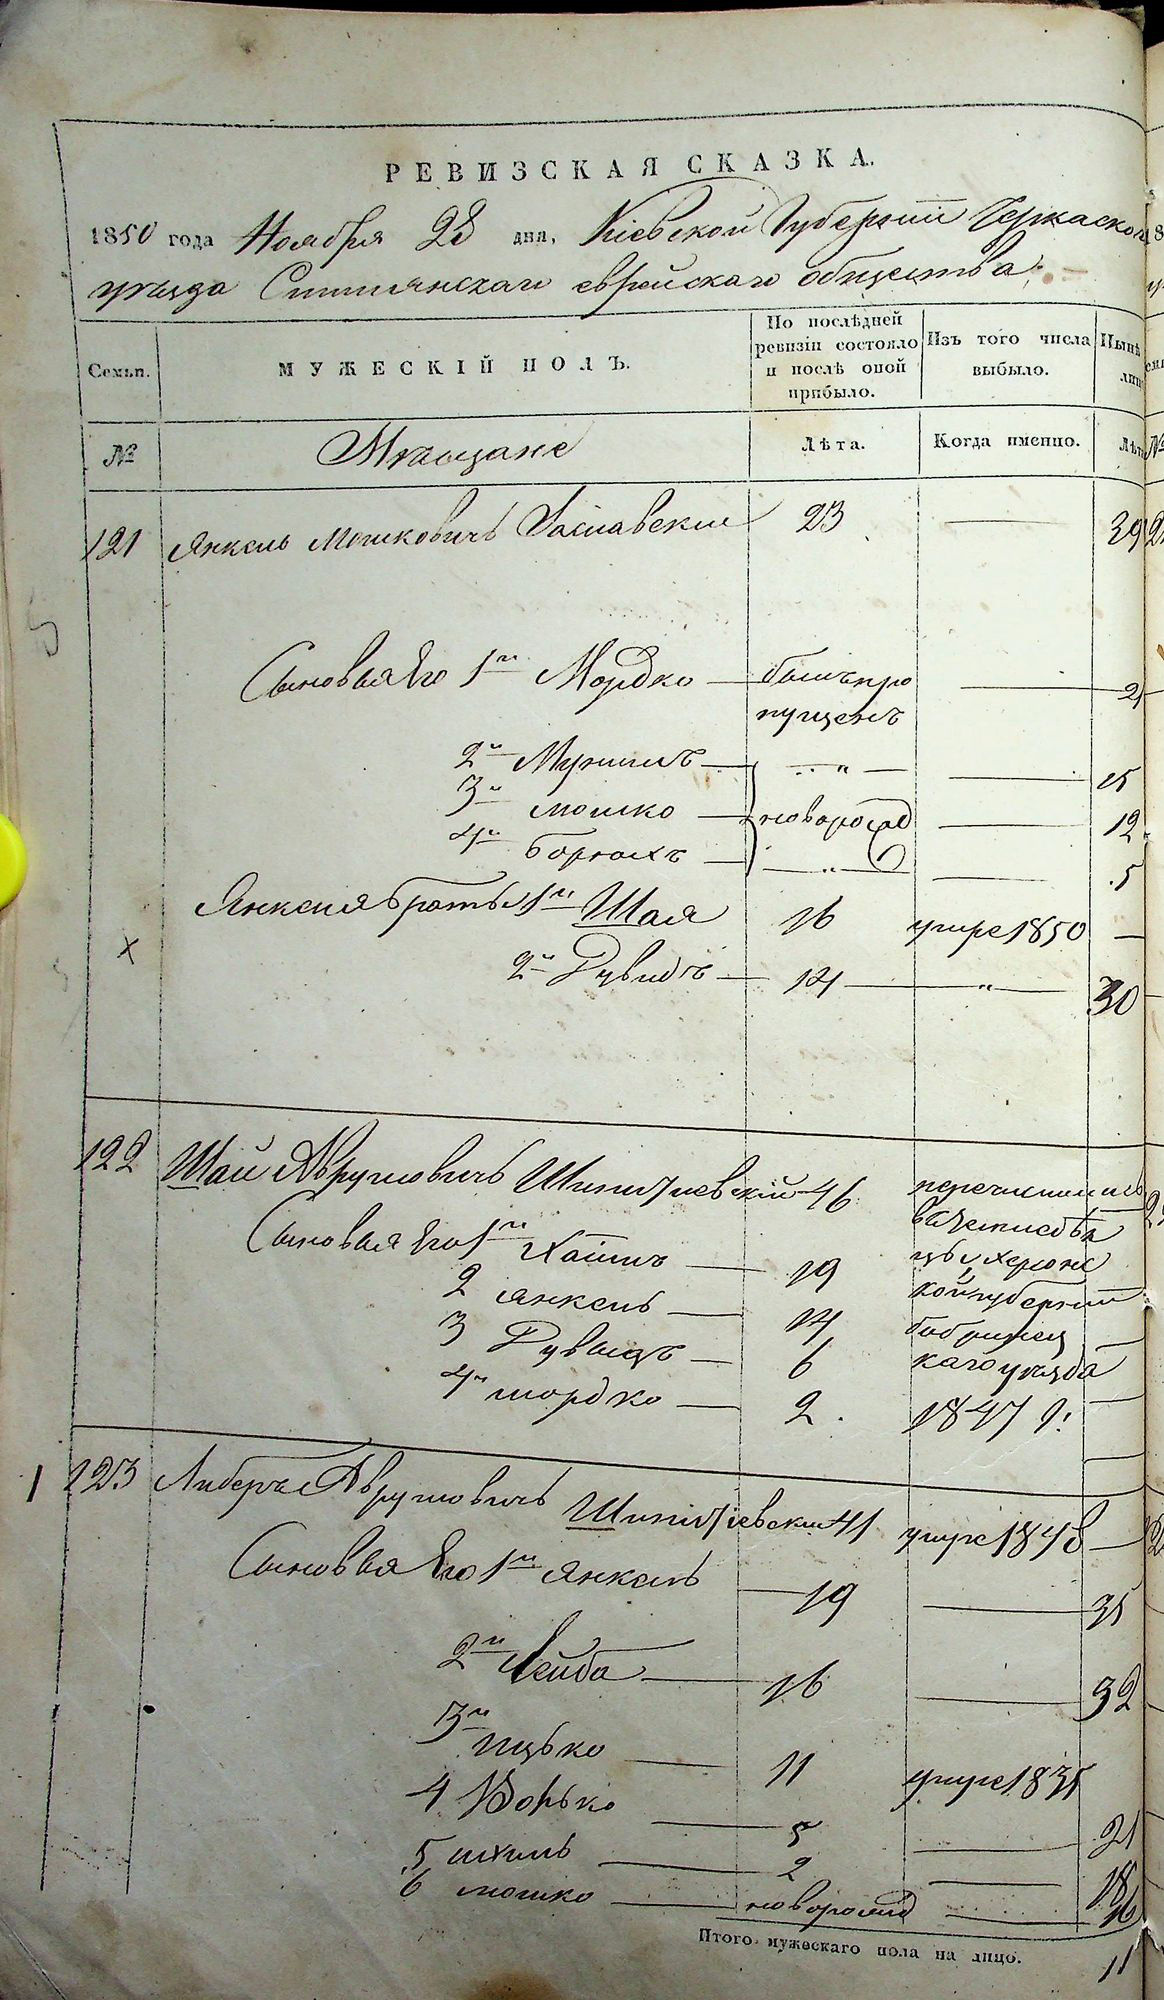 РЕВИЗСКАЯ СКАЗКА.
1850 года Ноября 28 дня, Кіевской Губерніи Черкаского
уѣзда Смилянскаго еврейскаго общества
Семьи. МУЖЕСКІЙ ПОЛЪ. По послѣдней ревизіи состояло и послѣ оной прибыло. Изъ того числа выбыло. Нынѣ
№ Мѣщане Лѣта. Когда именно. Лѣта
121 Янкель Мошковичъ Заславскій 23 — 39
Сыновья Его 1й Мордко — былъ пропущенъ — 21
2й — „ — 15
3й Мошко — новорожд — 12
4й Борохъ — „ — 5
Янкеля братья 1й Шая 16 умре 1850 —
х 2й Рувинъ — 14 — „ — 30
122 Шая Аврумовичъ 46 перечислились
Сыновья Его 1й Хаимъ — 19
2 Янкель — 14
3 — 6
4й Мордко — 2
въ земледѣльцы Херонской губерніи Бобринецкаго уѣзда
1847 г.
1 123 Либеръ Аврумовичъ 41 умре 1848 —
Сыновья Его 1й Янкель — 19 — 35
2й Лейба — 16 — 32
3й Ицько — 11 умре 1835
4 Борько — 5 — 21
5 — 2 — 18
6 Мошко — новорожд — 16
Итого мужескаго пола на лицо. 11